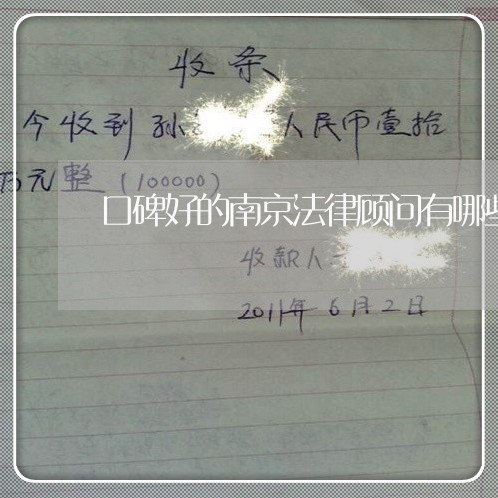 收条
今收到 孙 人民币壹拾
万元整（100000）
口碑好的南京法律顾问有哪些
收款人
2011年6月2日